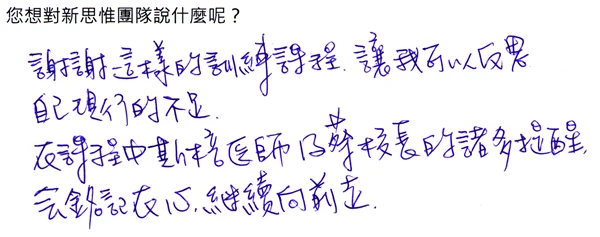 您想對新思惟團隊說什麼呢？
謝謝這樣的訓練課程，讓我可以反思
自己現行的不足.
在課程中斯棓医師及蔡校長的諸多提醒，
会銘記在心，継續向前走.